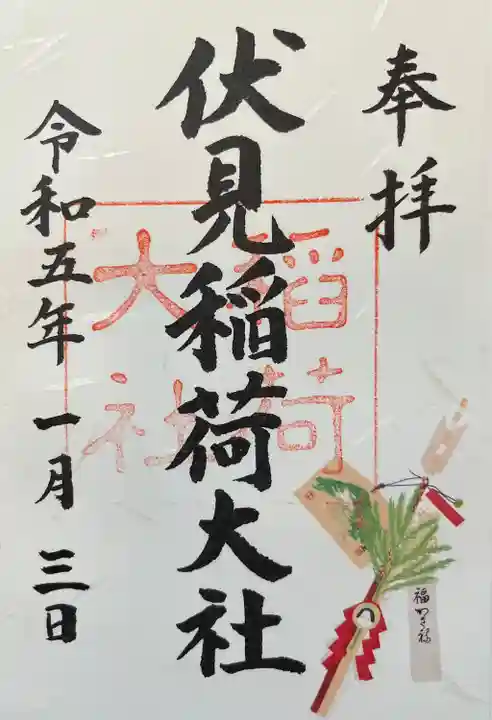 奉拝
伏見稲荷大社
稲荷
大社
令和五年一月三日